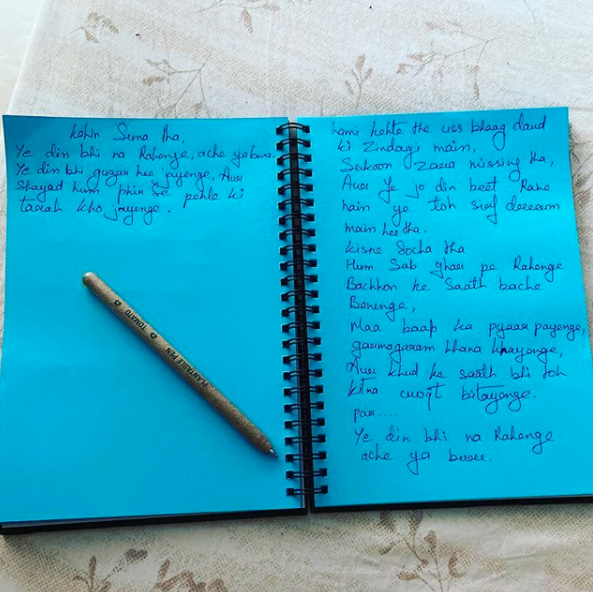 kahin Suna tha,
Ye din bhi na Rahenge, ache ya bure.
Ye din bhi guzar hee jayenge, Aur
Shayad hum phir se pehle ki
tarah kho jayenge.
PLANTABLE PEN TOMATO
hami kehte the uss bhaag daud
ki Zindagi main,
Sukoon Zara missing tha,
Aur Ye jo din beet Rahe
hain ye toh sirf dream
main hee tha.
kisne Socha tha
Hum Sab ghar pe Rahenge
Bachhon ke Saath bache
Banenge,
Maa baap ka pyaar payenge,
garmagaram khana khayenge,
Aur khud ke saath bhi toh
kitna waqt bitayenge.
par....
Ye din bhi na Rahenge
ache ya buree.